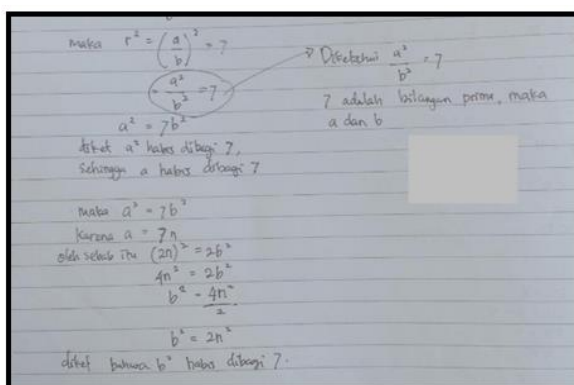 maka r² = (a/b)² = 7
= a²/b² = 7
a² = 7b²
diket a² habis dibagi 7,
sehingga a habis dibagi 7
maka a² = 7b²
karena a = 7n
oleh sebab itu (2n)² = 2b²
4n² = 2b²
b² = 4n²/2
b² = 2n²
diket bahwa b² habis dibagi 7.
Diketahui a²/b² = 7
7 adalah bilangan prima, maka
a dan b